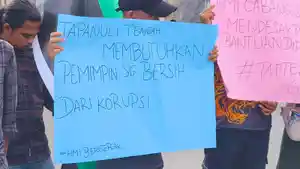 TAPANULI TENGAH
MEMBUTUHKAN
PEMIMPIN YG BERSIH
DARI KORUPSI
#HMI BERGERAK
MENDESAK
BANTUAN DAN